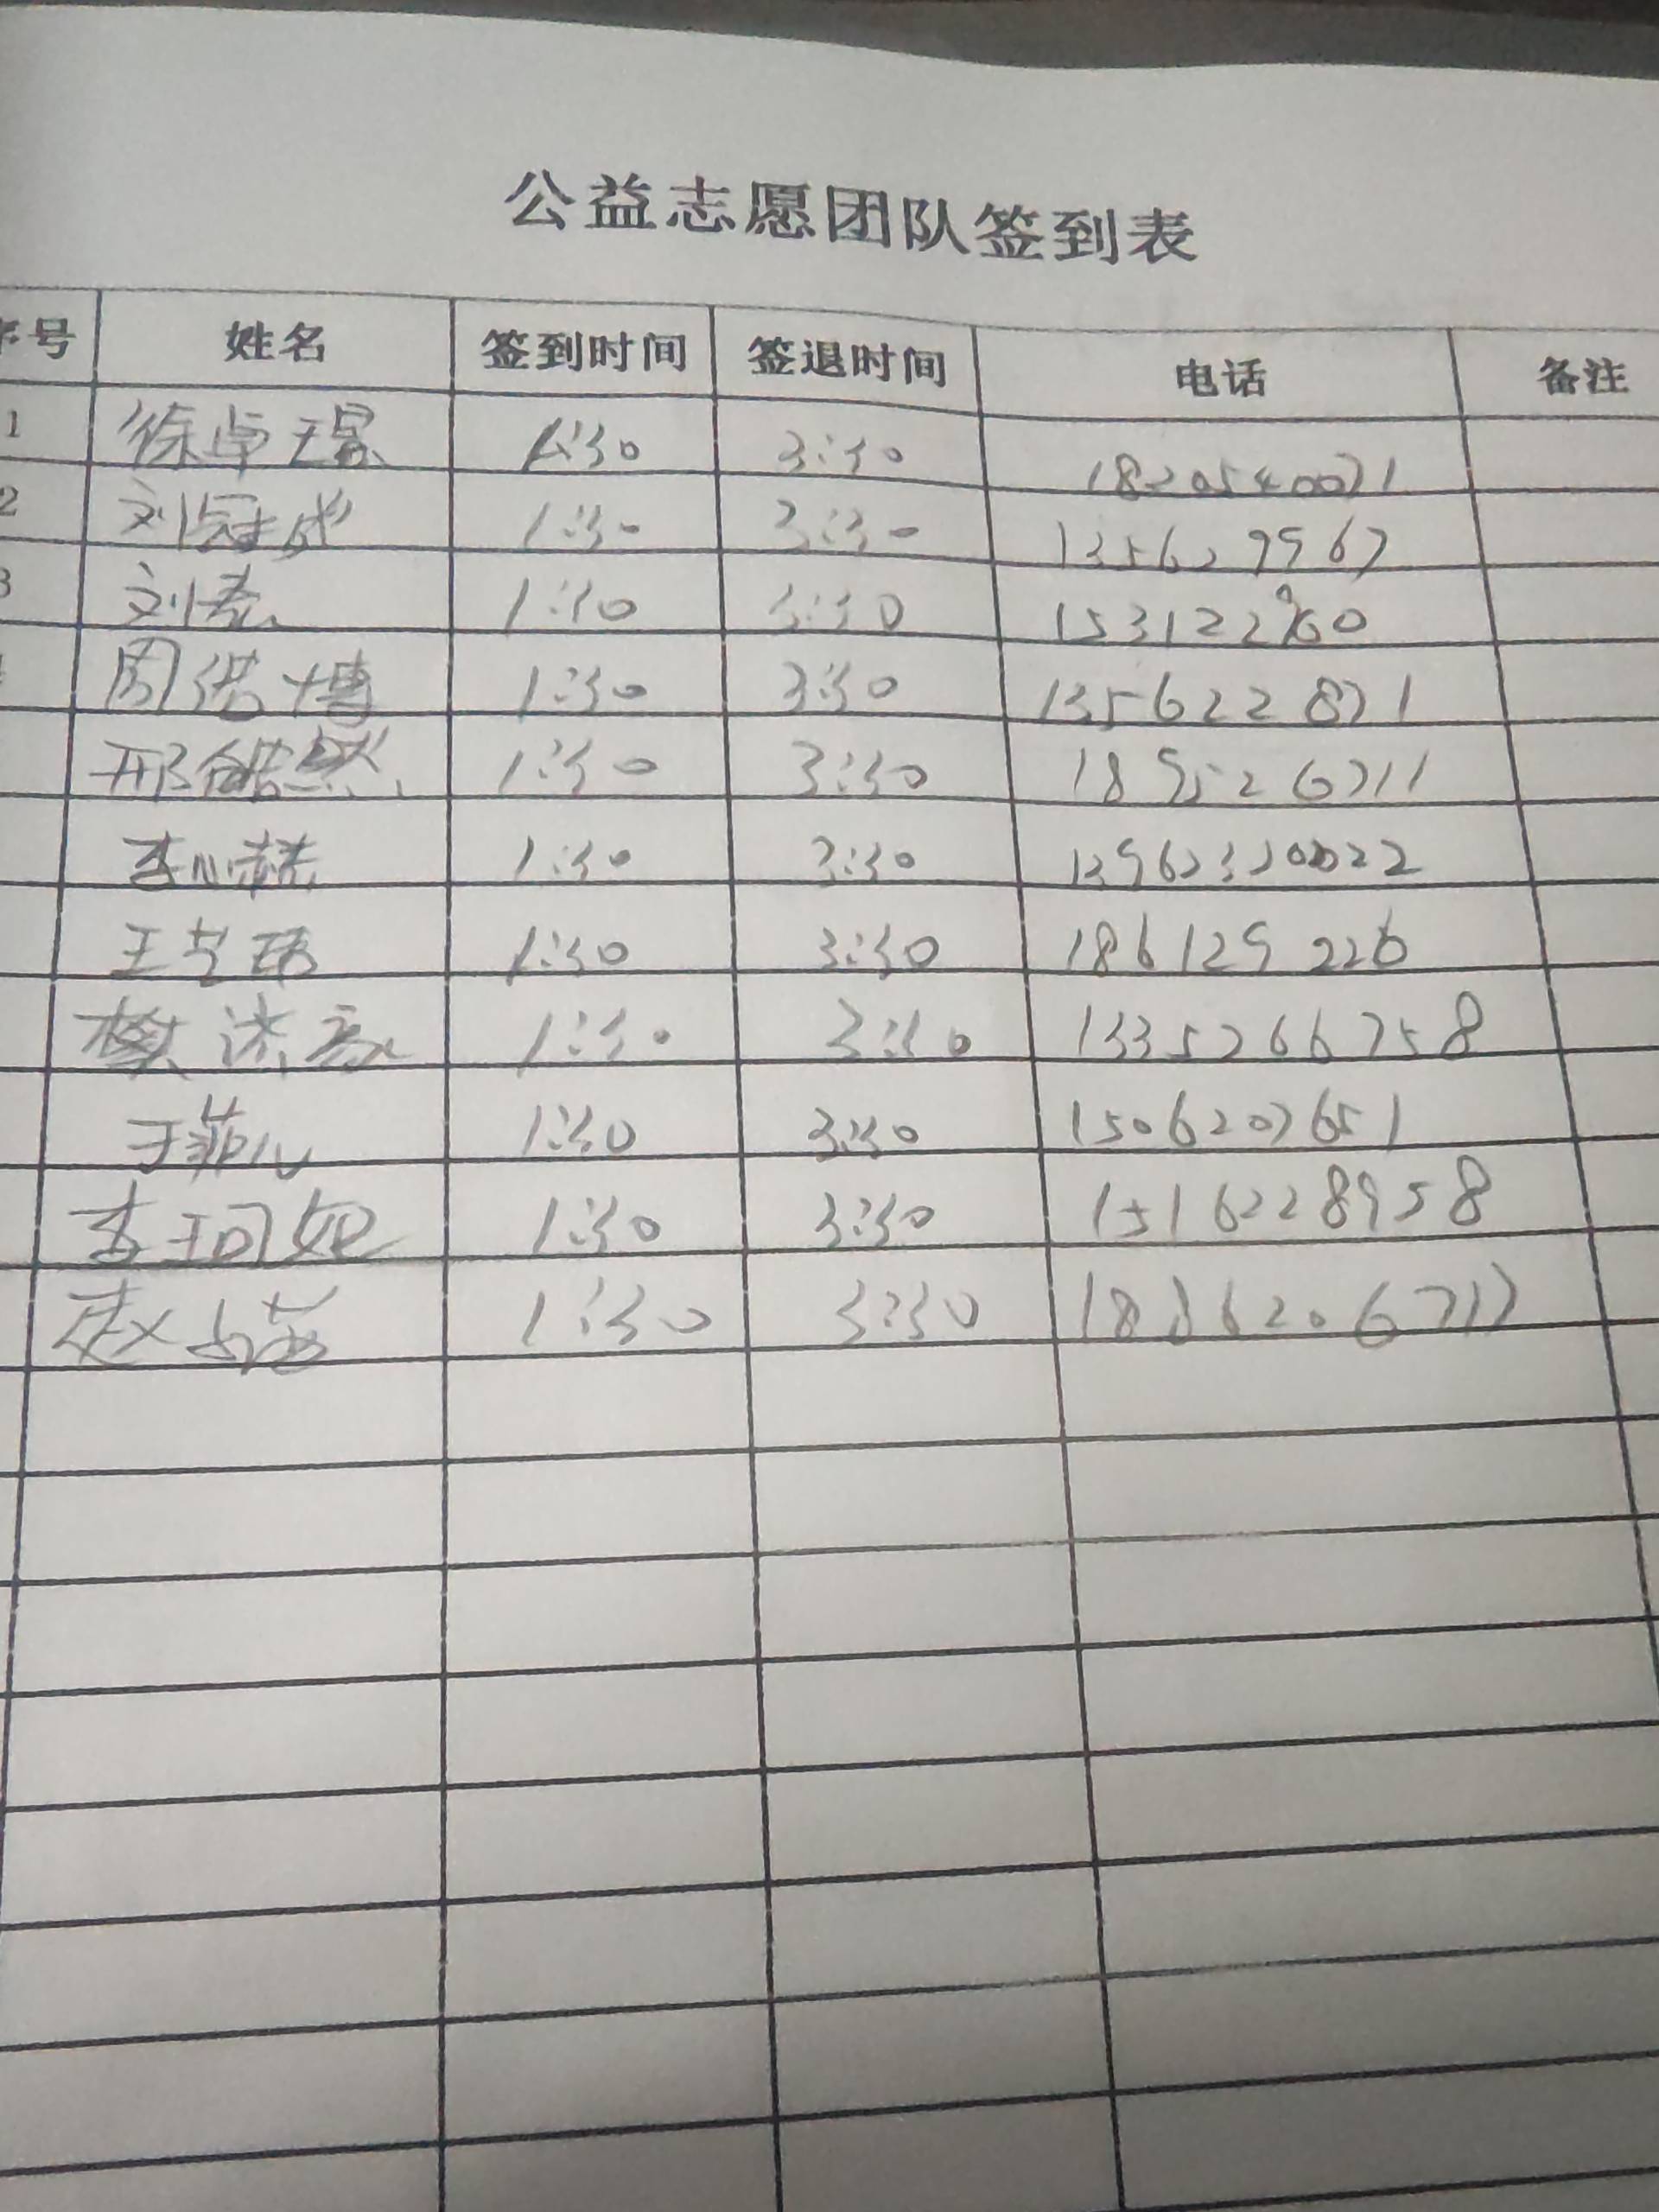 公益志愿团队签到表
序号 姓名 签到时间 签退时间 电话 备注
1 徐卓琨 1:30 3:30 18205400071
2 刘冠成 1:30 3:30 135627967
3 刘 1:30 3:30 153122960
周洪博 1:30 3:30 135622871
邢皓然 1:30 3:30 189526711
李心赫 1:30 3:30
王艺珂 1:30 3:30 186129226
樊济豪 1:30 3:30 1335266758
于菲儿 1:30 3:30 1506207651
李珂妮 1:30 3:30 1516228958
赵 1:30 3:30 1886206717